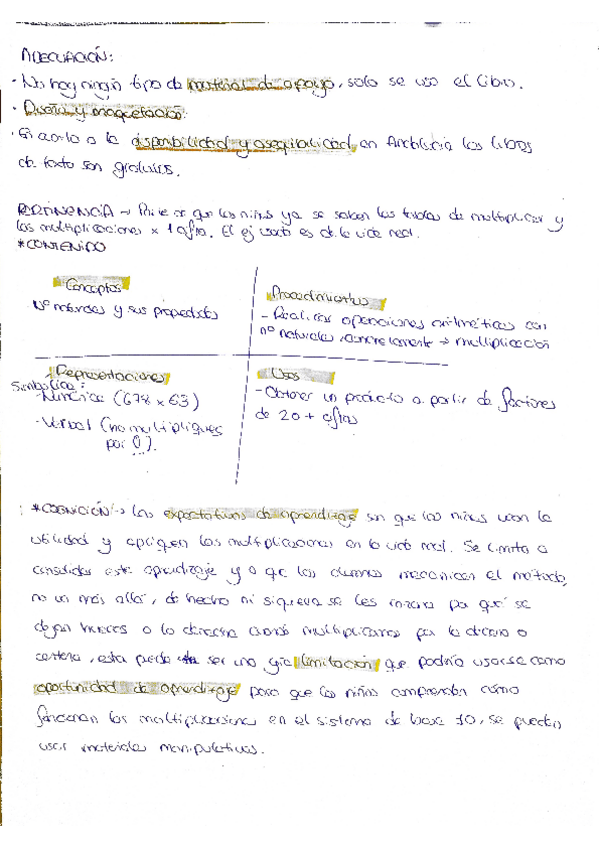 ADECUACIÓN:
· No hay ningún tipo de material de apoyo, solo se usa el libro.
· Diseño y maquetación.
· En cuanto a la disponibilidad y asequibilidad en Andalucía los libros
de texto son gratuitos.
PERTINENCIA → de que los niños ya se saben las tablas de multiplicar y
las multiplicaciones x 1 cifra. El ej usado es de la vida real.
*CONTENIDO
Conceptos
Nº naturales y sus propiedades
Procedimientos
- Realizar operaciones aritméticas con
nº naturales, concretamente → multiplicación
Representaciones
Simbólica:
- Numérica (678 x 63)
- Verbal (no multipliques
por 0).
...
Usos
- Obtener un producto a partir de factores
de 20 + cifras
*COGNICIÓN → las expectativas de aprendizaje son que los niños vean la
utilidad y apliquen las multiplicaciones en la vida real. Se limita a
consolidar este aprendizaje y a que los alumnos mecanicen el método,
no va más allá, de hecho ni siquiera se les por qué se
dejan huecos a la derecha cuando multiplicamos por la decena o
centena, esta puede ser una gran limitación que podría usarse como
oportunidad de aprendizaje para que los niños comprendan cómo
funcionan las multiplicaciones en el sistema de base 10, se pueden
usar materiales manipulativos.